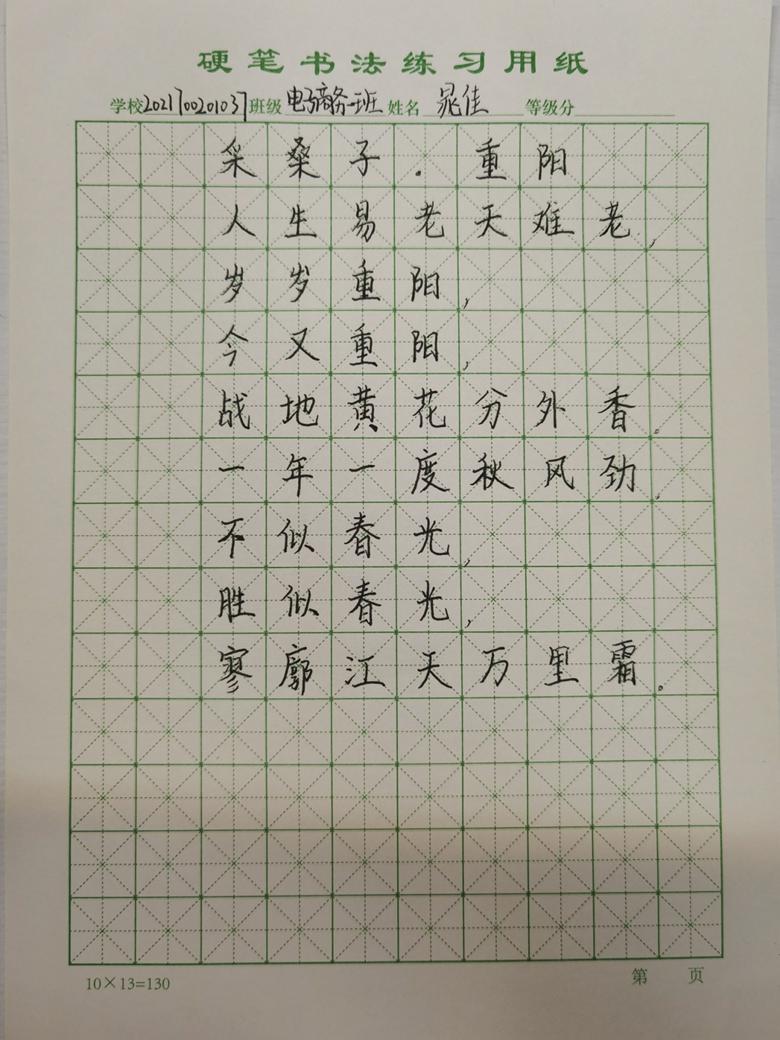 硬笔书法练习用纸
学校2021700201037班级电子商务一班姓名晁佳等级分
采桑子.重阳
人生易老天难老,
岁岁重阳,
今又重阳,
战地黄花分外香。
一年一度秋风劲,
不似春光,
胜似春光,
寥廓江天万里霜。
10×13=130
第 页